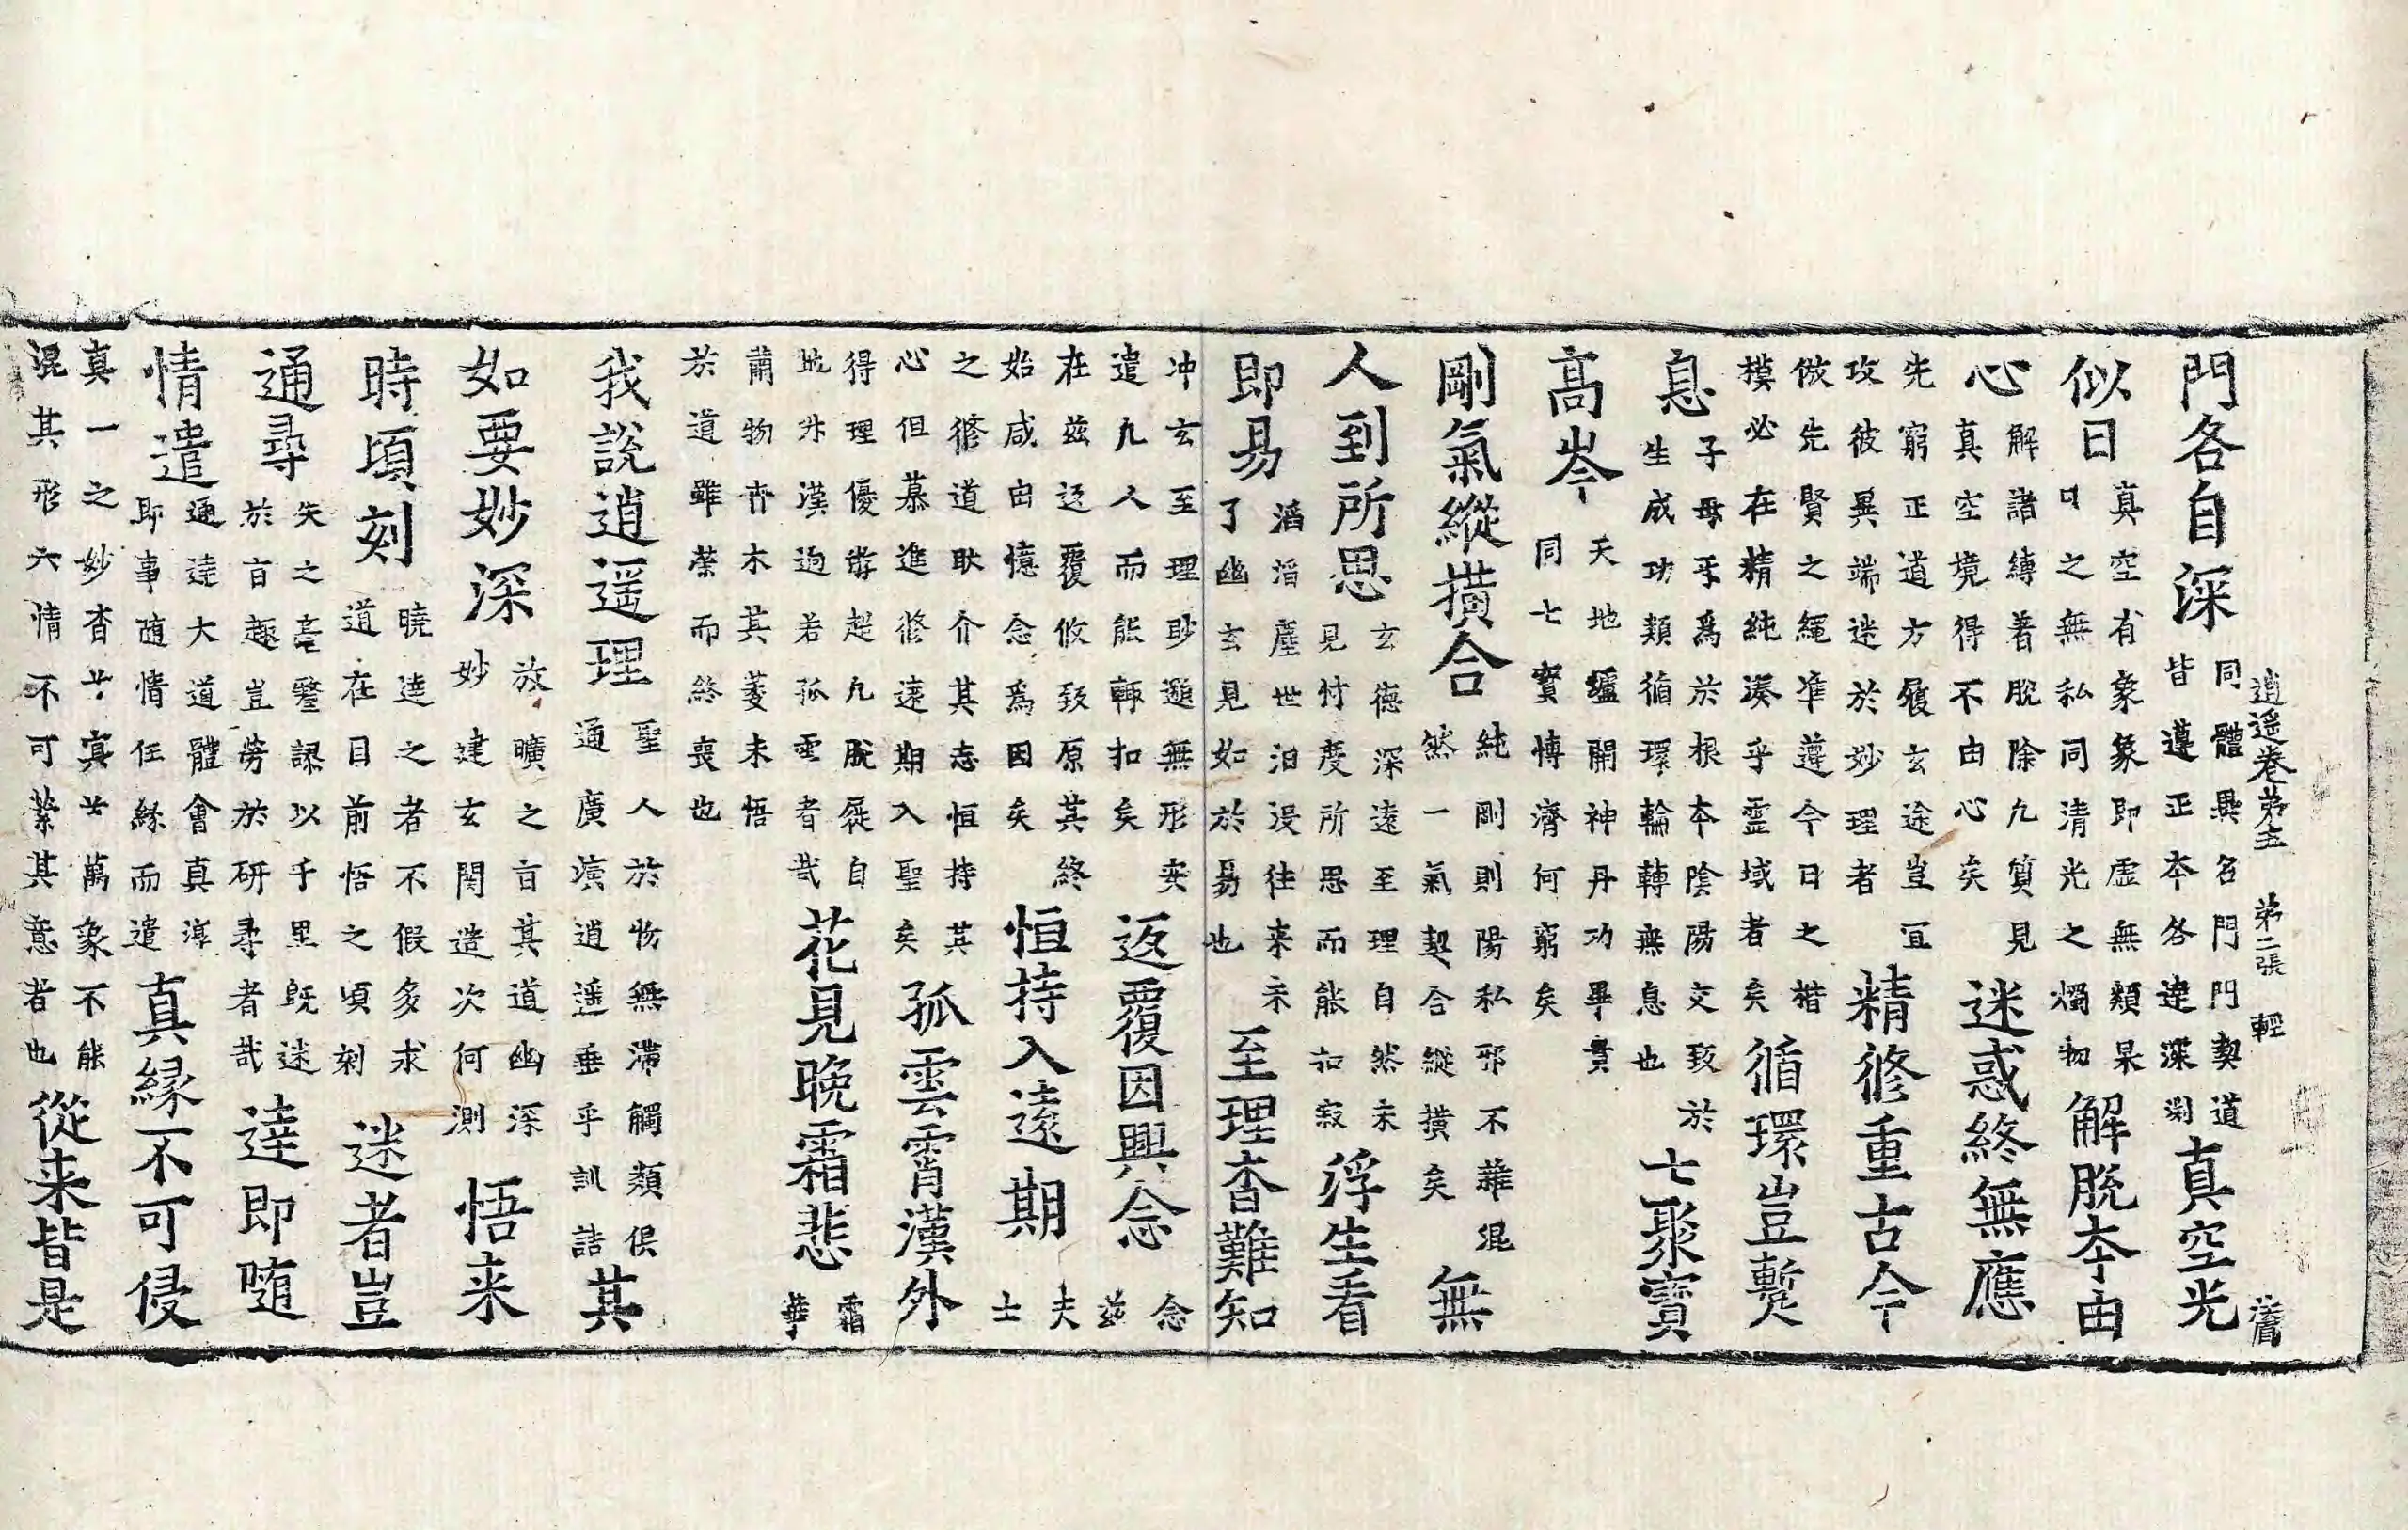 逍遥卷第五 第二張 輕
門各自深 同體異名門門契道
皆遵正本各達深測 真空光
似日 真空有象象即虛無類杲
日之無私同清光之燭物 解脫本由
心 解諸縛著脫除凡質見
真空境得不由心矣 迷惑終無應
先窮正道方履玄途豈宜
攻彼異端迷於妙理者 精修重古今
倣先賢之繩准遵今日之楷
模必在精純湊乎靈域者矣 循環豈蹔
息 子母乎爲於根本陰陽交致於
生成功類循環輪轉無息也 七聚寳
高岑 天地壚開神丹功畢貫
同七寳博濟何窮矣
剛氣縱撗合 純剛則陽私邪不雜混
然一氣契合縱撗矣 無
人到所思 玄德深遠至理自然未
見忖度所思而能扣寂 浮生看
即易 滔滔塵世汩沒往来未
了幽玄見如於易也 至理杳難知
冲玄至理眇邈無形安
遣凡人而能輙扣矣 返覆因興念 念
兹
在兹返覆攸致原其終
始咸由憶念爲因矣 恒持入遠期 夫
士
之修道耿介其志恒持其
心但慕進修遠期入聖矣 孤雲霄漢外
得理優游超凡脫屣自
升漢逈若孤雲者哉 花見晚霜悲 霜
華
薾物卉木其萎未悟
於道雖榮而終喪也
我說逍遥理 聖人於物無滯觸類俱
通廣演逍遥垂乎訓誥 其
如要妙深 放曠之言其道幽深
妙建玄関造次何測 悟来
時頃刻 曉達之者不假多求
道在目前悟之頃刻 迷者豈
通尋 失之毫釐謬以千里旣迷
於言趣豈勞於研尋者哉 達即隨
情遣 通達大道體會真淳
即事随情任緣而遣 真緣不可侵
真一之妙杳杳冥冥萬象不能
混其形六情不可縈其意者也 從来皆是